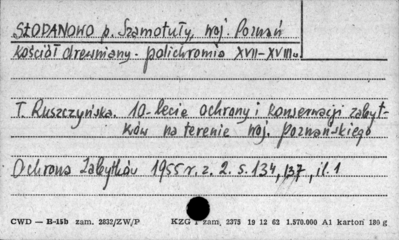 SŁODANOWO p. Szamotuły, woj. Poznań
Kościół drewniany - polichromia XVII-XVIIIw.
T. Ruszczyńska. 10-lecie ochrony i konserwacji zabyt-
ków na terenie woj. poznańskiego
Ochrona Zabytków 1955 r. z. 2. s. 134, 137, il. 1
CWD — B-15b zam. 2832/ZW/P KZG 1 zam. 2375 19 12 62 1.570.000 A1 karton 180 g